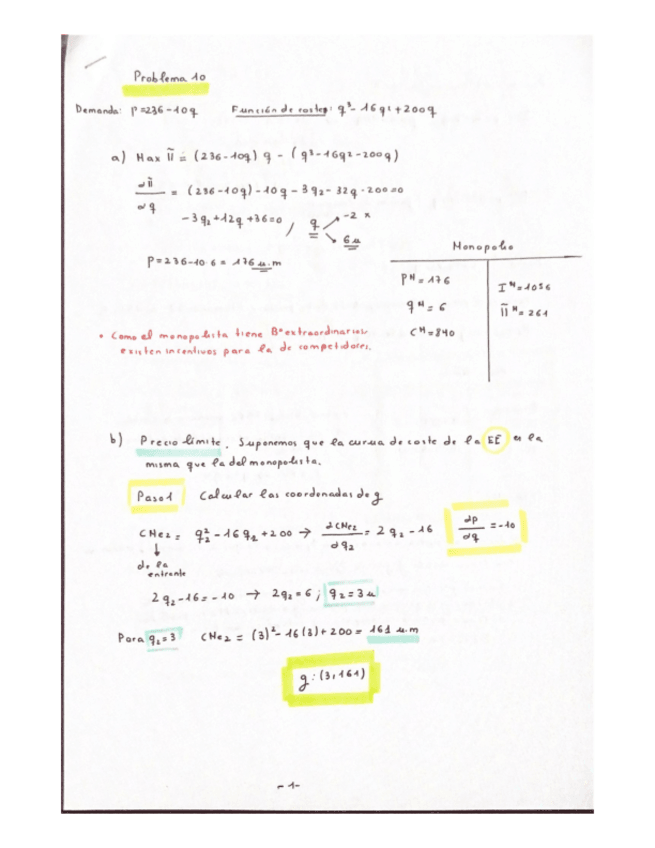 Problema 10
Demanda: p=236-10q Función de costes: q³-16q²+200q
a) Max Π = (236-10q) q - (q³-16q²-200q)
dΠ/dq = (236-10q)-10q-3q²-32q-200=0
-3q²+12q+36=0 / q -2 x
6u
p=236-10·6 = 176 u.m
Monopolio
pᴹ = 176
qᴹ = 6
Cᴹ=840
Iᴹ=1056
Πᴹ= 261
• Como el monopolista tiene Bº extraordinarios
existen incentivos para la de competidores.
b) Precio límite. Suponemos que la curva de coste de la EE es la
misma que la del monopolista.
Paso 1 Calcular las coordenadas de g
CMe₂= q₂²-16q₂+200 → dCMe₂/dq₂ = 2q₂-16 dp/dq = -10
↓
de la
entrante
2q₂-16=-10 → 2q₂=6; q₂=3u
Para q₂=3 CMe₂ = (3)²-16(3)+200= 161 u.m
g:(3,161)
-1-